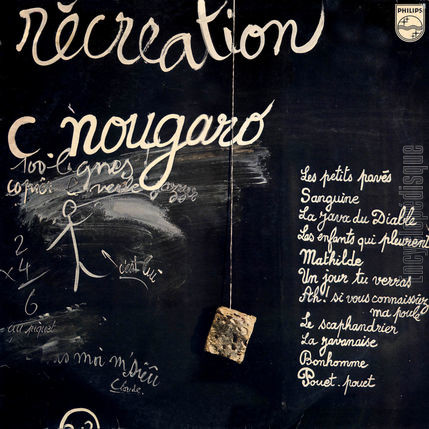 récréation
PHILIPS
c nougaro
100 lignes
copier
2
x 4
6
au piquet
c'est lui
pas moi m'sieu
Claude.
Les petits pavés
Sanguine
La java du Diable
Les enfants qui pleurent
Mathilde
Un jour tu verras
Ah! si vous connaissiez
ma poule
Le scaphandrier
La javanaise
Bonhomme
Pouet-pouet
Encyclopédisque